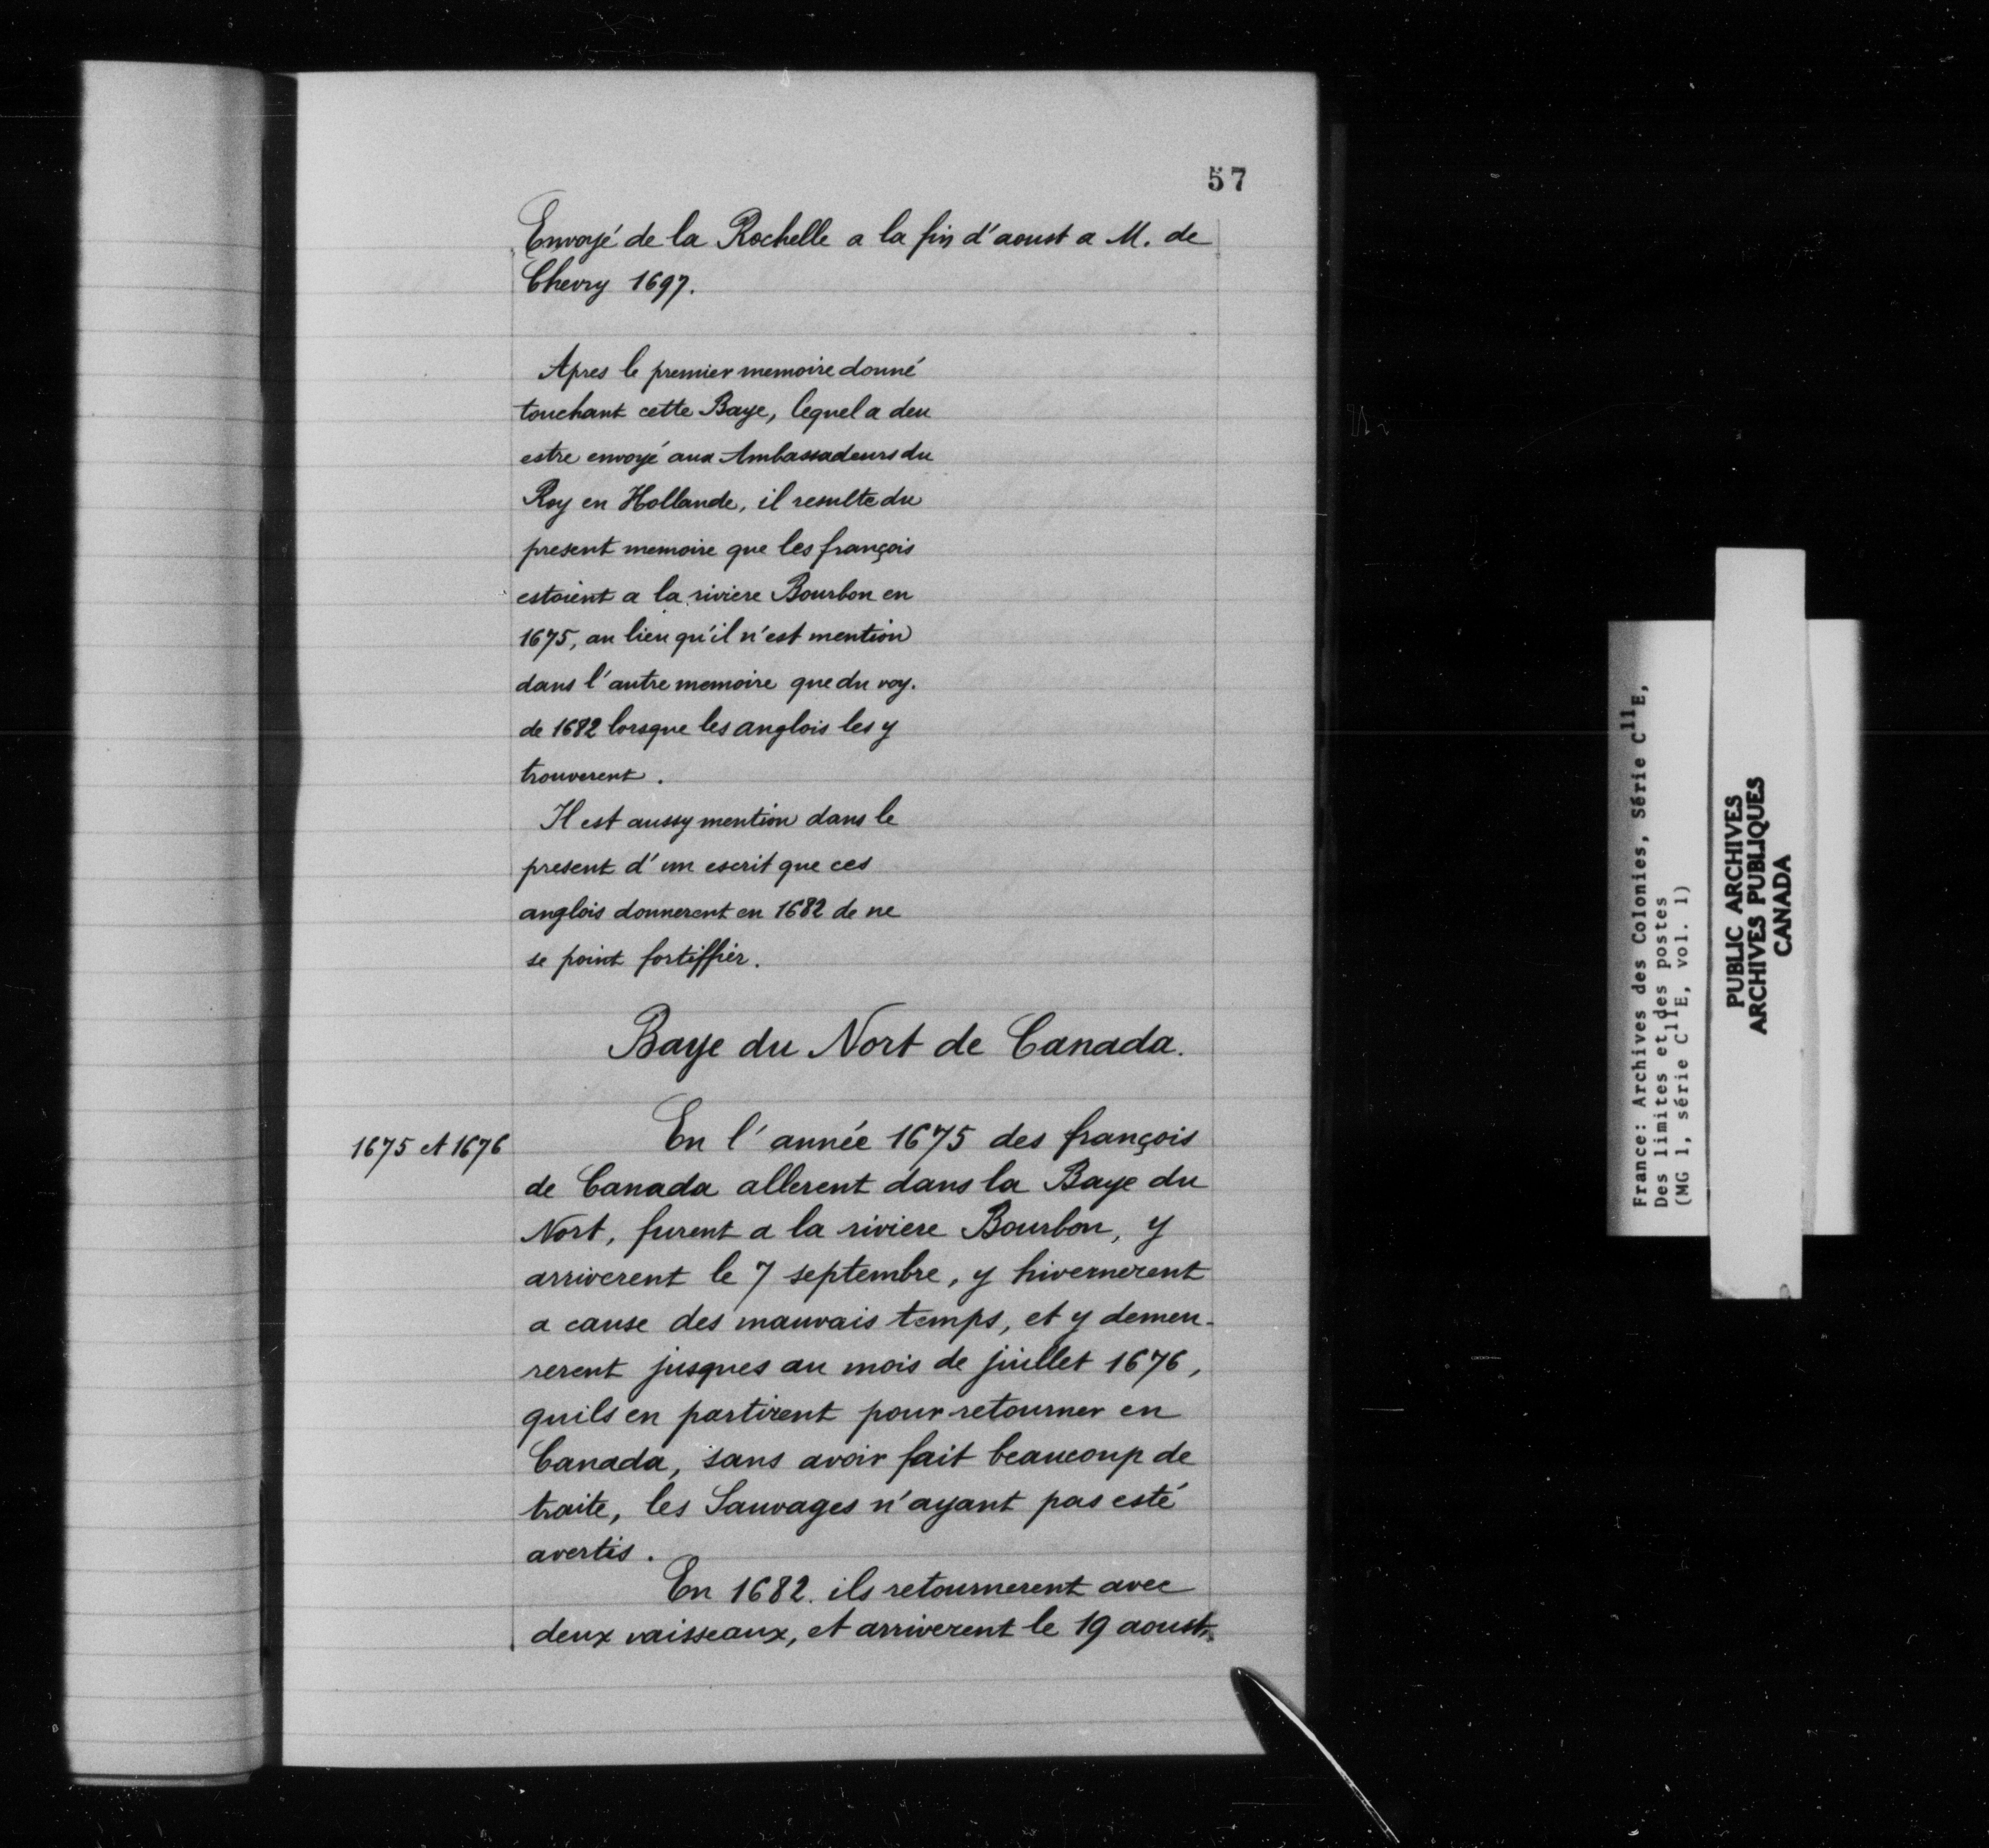 57
Envoyé de la Rochelle a la fin d'aoust a M. de
Chevry 1697.
Apres le premier memoire donné
touchant cette Baye, lequel a deu
estre envoyé aux Ambassadeurs du
Roy en Hollande, il resulte du
present memoire que les françois
estoient a la riviere Bourbon en
1675, au lieu qu'il n'est mention
dans l'autre memoire que du voy.
de 1682 lorsque les anglois les y
trouverent.
Il est aussy mention dans le
present d'un escrit que ces
anglois donnerent en 1682 de ne
se point fortiffier.
Baye du Nort de Canada.
1675 et 1676
En l'année 1675 des françois
de Canada allerent dans la Baye du
Nort, furent a la riviere Bourbon, y
arriverent le 7 septembre, y hivernerent
a cause des mauvais temps, et y demeu-
rerent jusques au mois de juillet 1676,
quils en partirent pour retourner en
Canada, sans avoir fait beaucoup de
traite, les Sauvages n'ayant pas esté
avertis.
En 1682. ils retournerent avec
deux vaisseaux, et arriverent le 19 aoust.
France: Archives des Colonies, Série C11E,
Des limites et des postes
(MG 1, série C11E, vol. 1)
PUBLIC ARCHIVES
ARCHIVES PUBLIQUES
CANADA